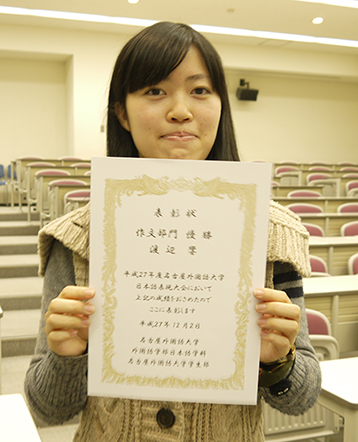 表彰状
作文部門 優勝
渡辺 響
平成27年度名古屋外国語大学
日本語表現大会において
上記の成績をおさめたので
ここに表彰します
平成27年 12月2日
名古屋外国語大学
外国語学部日本語学科
名古屋外国語大学学生課